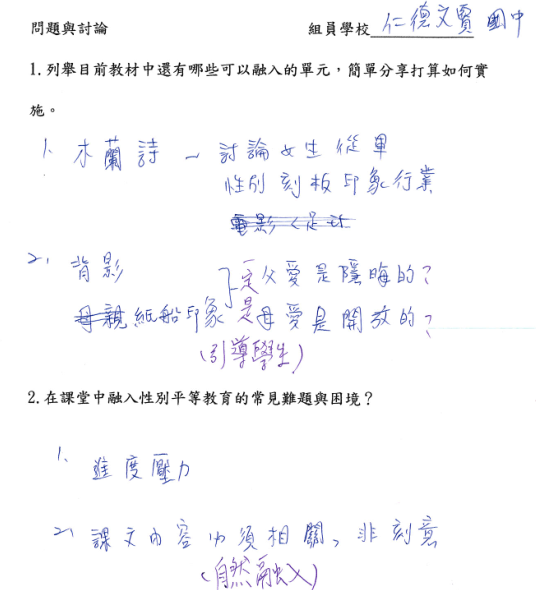 問題與討論 組員學校 仁德文賢 國中
1. 列舉目前教材中還有哪些可以融入的單元，簡單分享打算如何實
施。
1、木蘭詩 — 討論女生從軍
性別刻板印象行業
2、背影 }一定父愛是隱晦的？
母親紙船印象 是母愛是開放的？
(引導學生)
2. 在課堂中融入性別平等教育的常見難題與困境？
1、進度壓力
2、課文內容必須相關、非刻意
(自然融入)